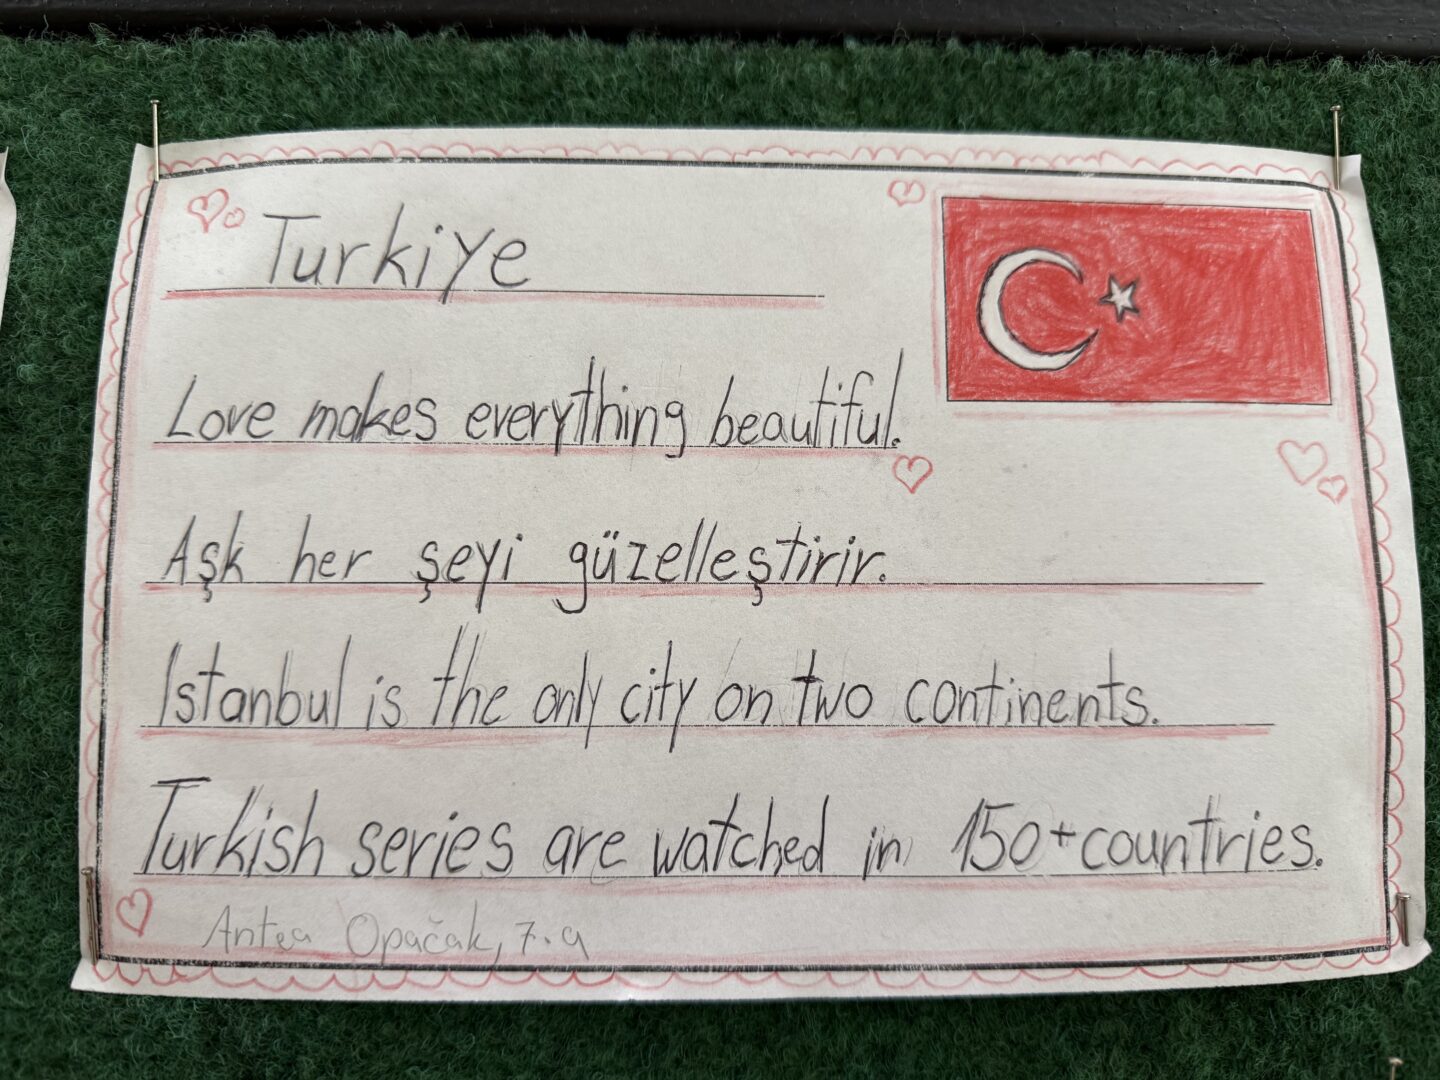 Turkiye
Love makes everything beautiful.
Aşk her şeyi güzelleştirir.
Istanbul is the only city on two continents.
Turkish series are watched in 150+countries.
Antea Opačak, 7.a